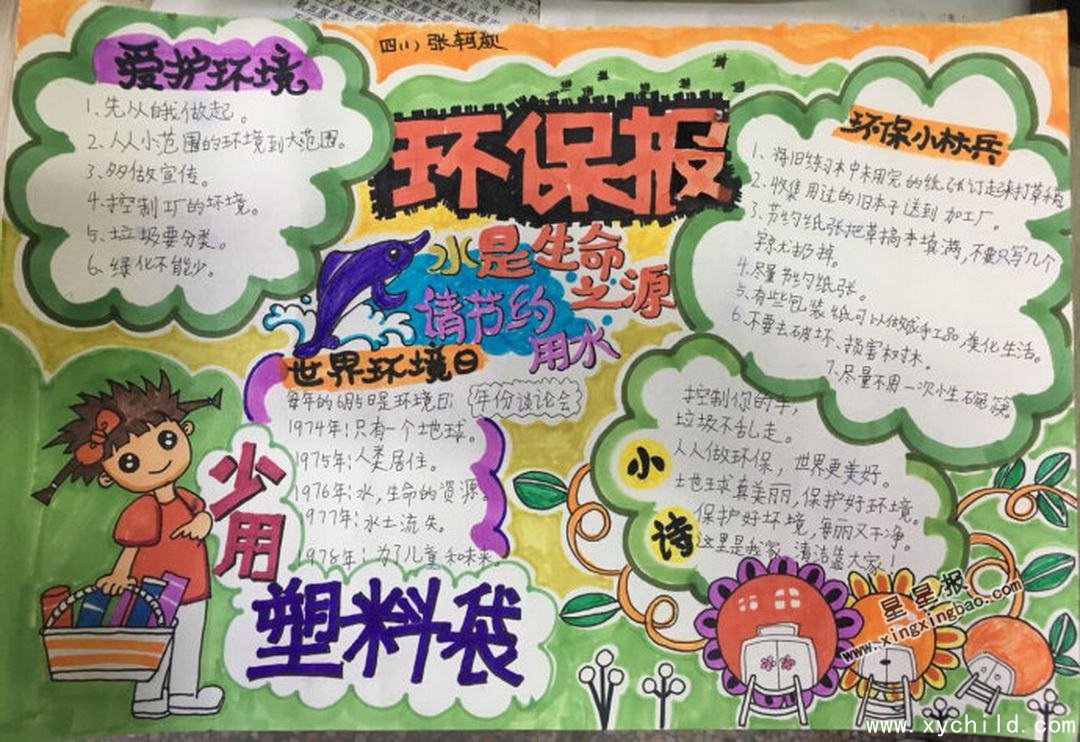 四(1) 张轲
爱护环境
1.先从自我做起。
2.从小范围的环境到大范围。
3.多做宣传。
4.控制工厂的环境。
5.垃圾要分类。
6.绿化不能少。
环保报
水是生命之源
请节约用水
环保小标兵
1.将旧练习本中未用完的纸张订起来打草稿
2.收集用过的旧本子送到加工厂。
3.节约纸张把草搞本填满,不要只写几个
字就扔掉。
4.尽量节约纸张。
5.有些包装纸可以做成手工品美化生活。
6.不要去破坏、损害树木。
7.尽量不用一次性碗筷。
世界环境日
每年的6月5日是环境日
年份谈论会
1974年:只有一个地球。
1975年:人类居住。
1976年:水,生命的资源。
1977年:水土流失。
1978年:为了儿童和未来。
少用
塑料袋
小诗
控制你的手,
垃圾不乱走。
人人做环保,世界更美好。
土也球真美丽,保护好环境。
保护好环境,每丽又干净。
这里是我家,清洁靠大家!
星星报
www.xingxingbao.com
www.xychild.com